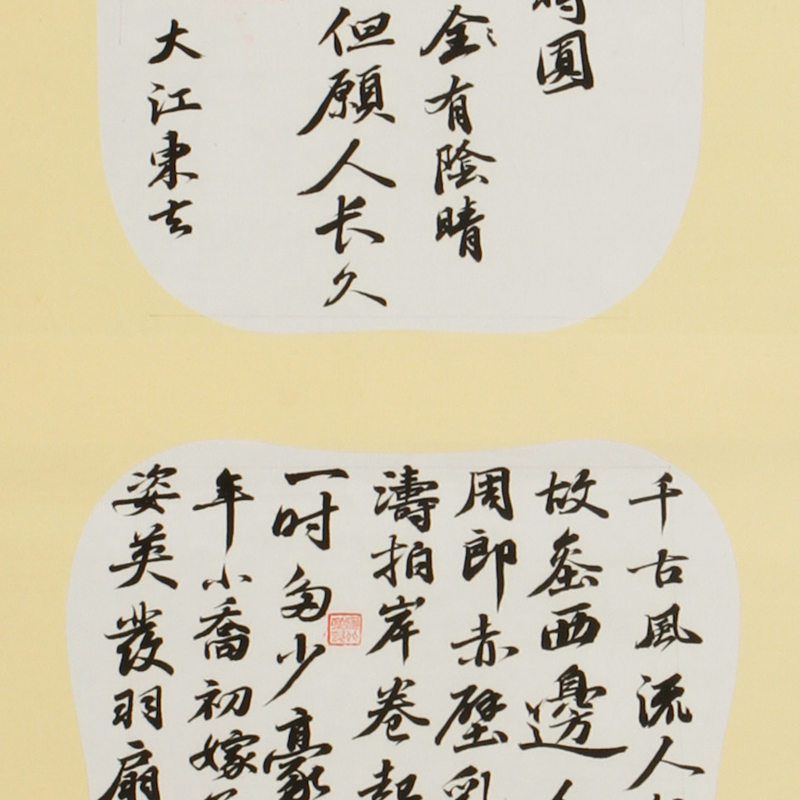 圓
全有陰晴
但願人長久
大江東去
千古風流人
故壘西邊人
周郎赤壁亂
濤拍岸卷起
一時多少豪
年小喬初嫁
姿英發羽扇